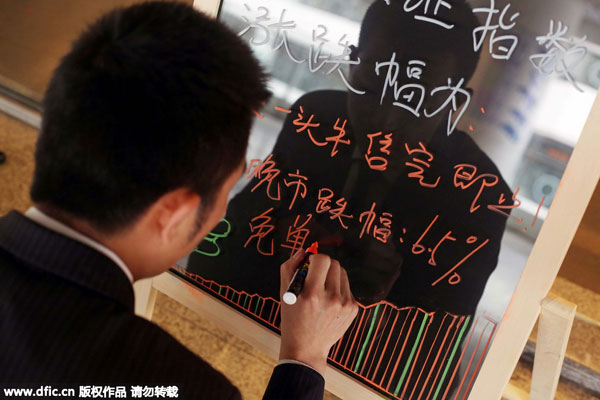 证指数
涨跌幅为:
一头牛售完即止!
晚市跌幅:6.5%
免单
www.dfic.cn 版权作品 请勿转载